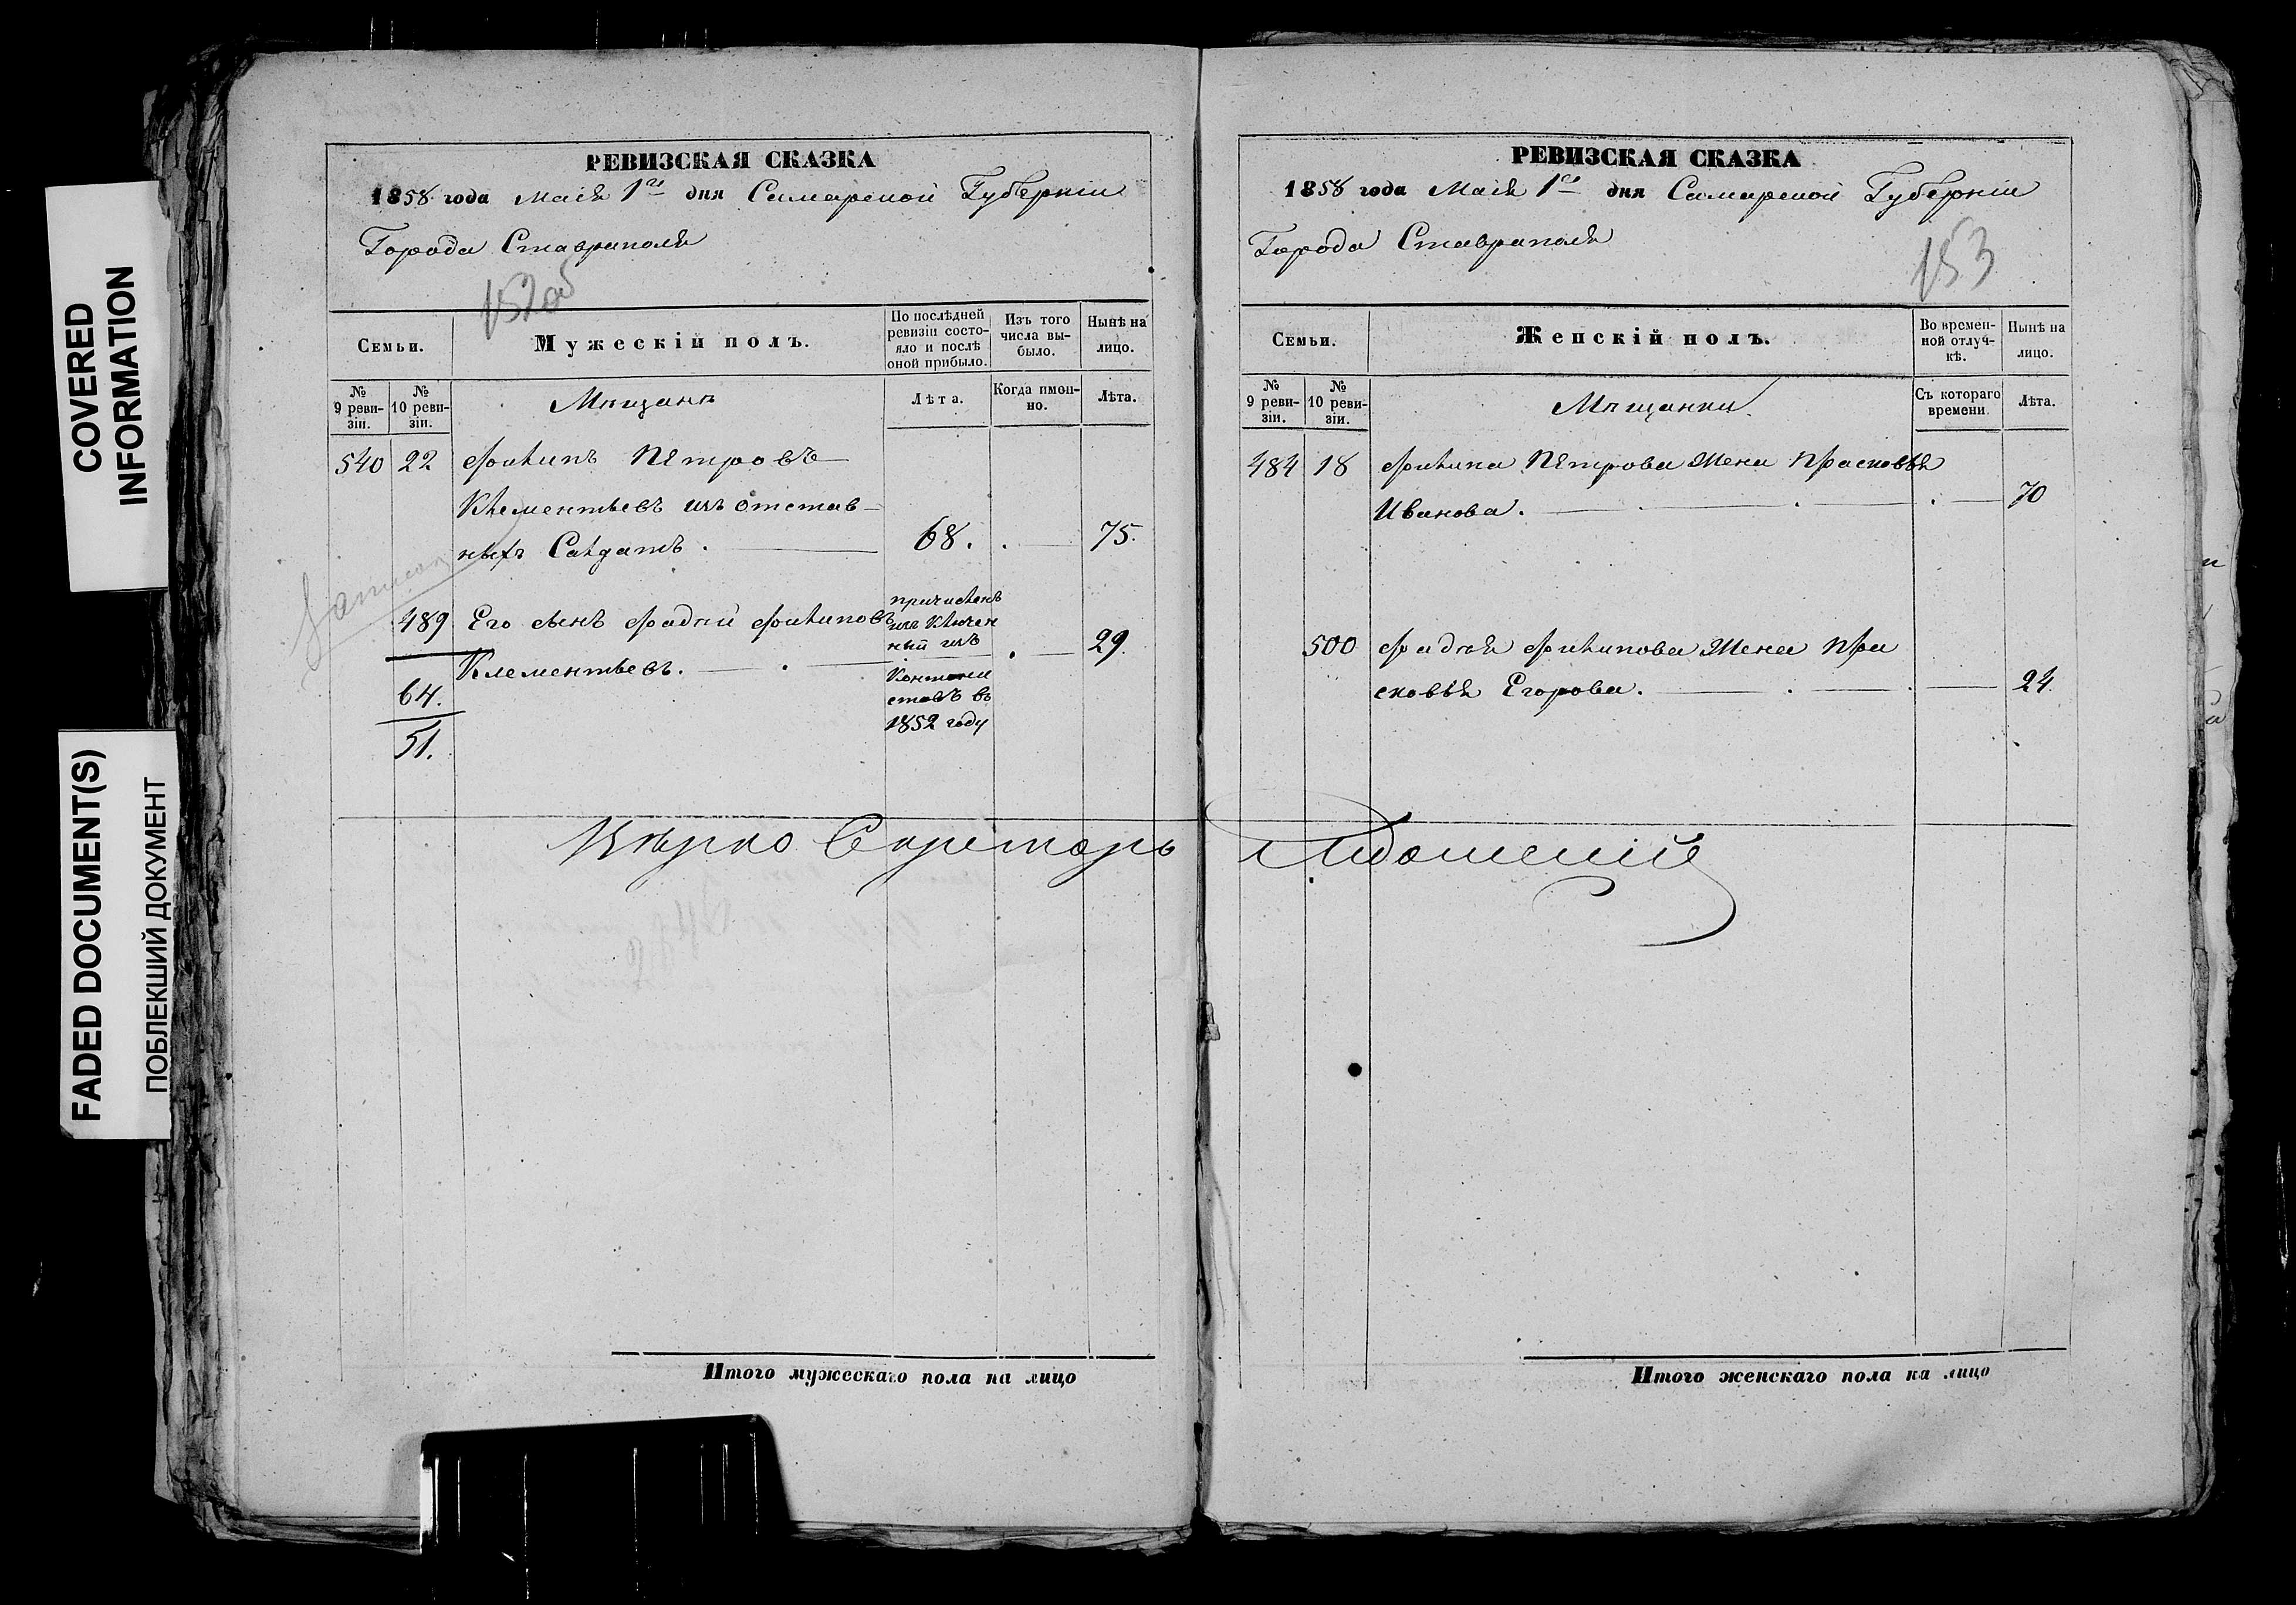 COVERED
INFORMATION
FADED DOCUMENT(S)
ПОБЛЕКШИЙ ДОКУМЕНТ
РЕВИЗСКАЯ СКАЗКА
1858 года Маія 1го дня Самарской Губерніи
Города Ставраполя
152об
Семьи.
Мужескій полъ.
По послѣдней ревизіи состояло и послѣ оной прибыло.
Изъ того числа выбыло.
Нынѣ на лицо.
№ 9 ревизіи.
№ 10 ревизіи.
Мѣщанѣ
Лѣта.
Когда именно.
Лѣта.
540 22 Филипъ Петровъ
Клементьевъ изъ отстав-
ныхъ Салдатъ. 68. 75.
489 Его сынъ Фадѣй Филиповъ
Клементьевъ. 29.
64.
51.
причисленъ
изъ Ключен
ный изъ
Кантони
стовъ въ
1852 году
Вѣрно Секретарь
Итого мужескаго пола на лицо
РЕВИЗСКАЯ СКАЗКА
1858 года Маія 1го дня Самарской Губерніи
Города Ставраполя
153
Семьи.
Женскій полъ.
Во временной отлучкѣ.
Нынѣ на лицо.
№ 9 ревизіи.
№ 10 ревизіи.
Мѣщанки
Съ котораго времени.
Лѣта.
484 18 Филипа Петрова Жена Прасковья
Иванова. 70
500 Фадѣя Филипова Жена Пра
сковья Егорова. 24.
Итого женскаго пола на лицо